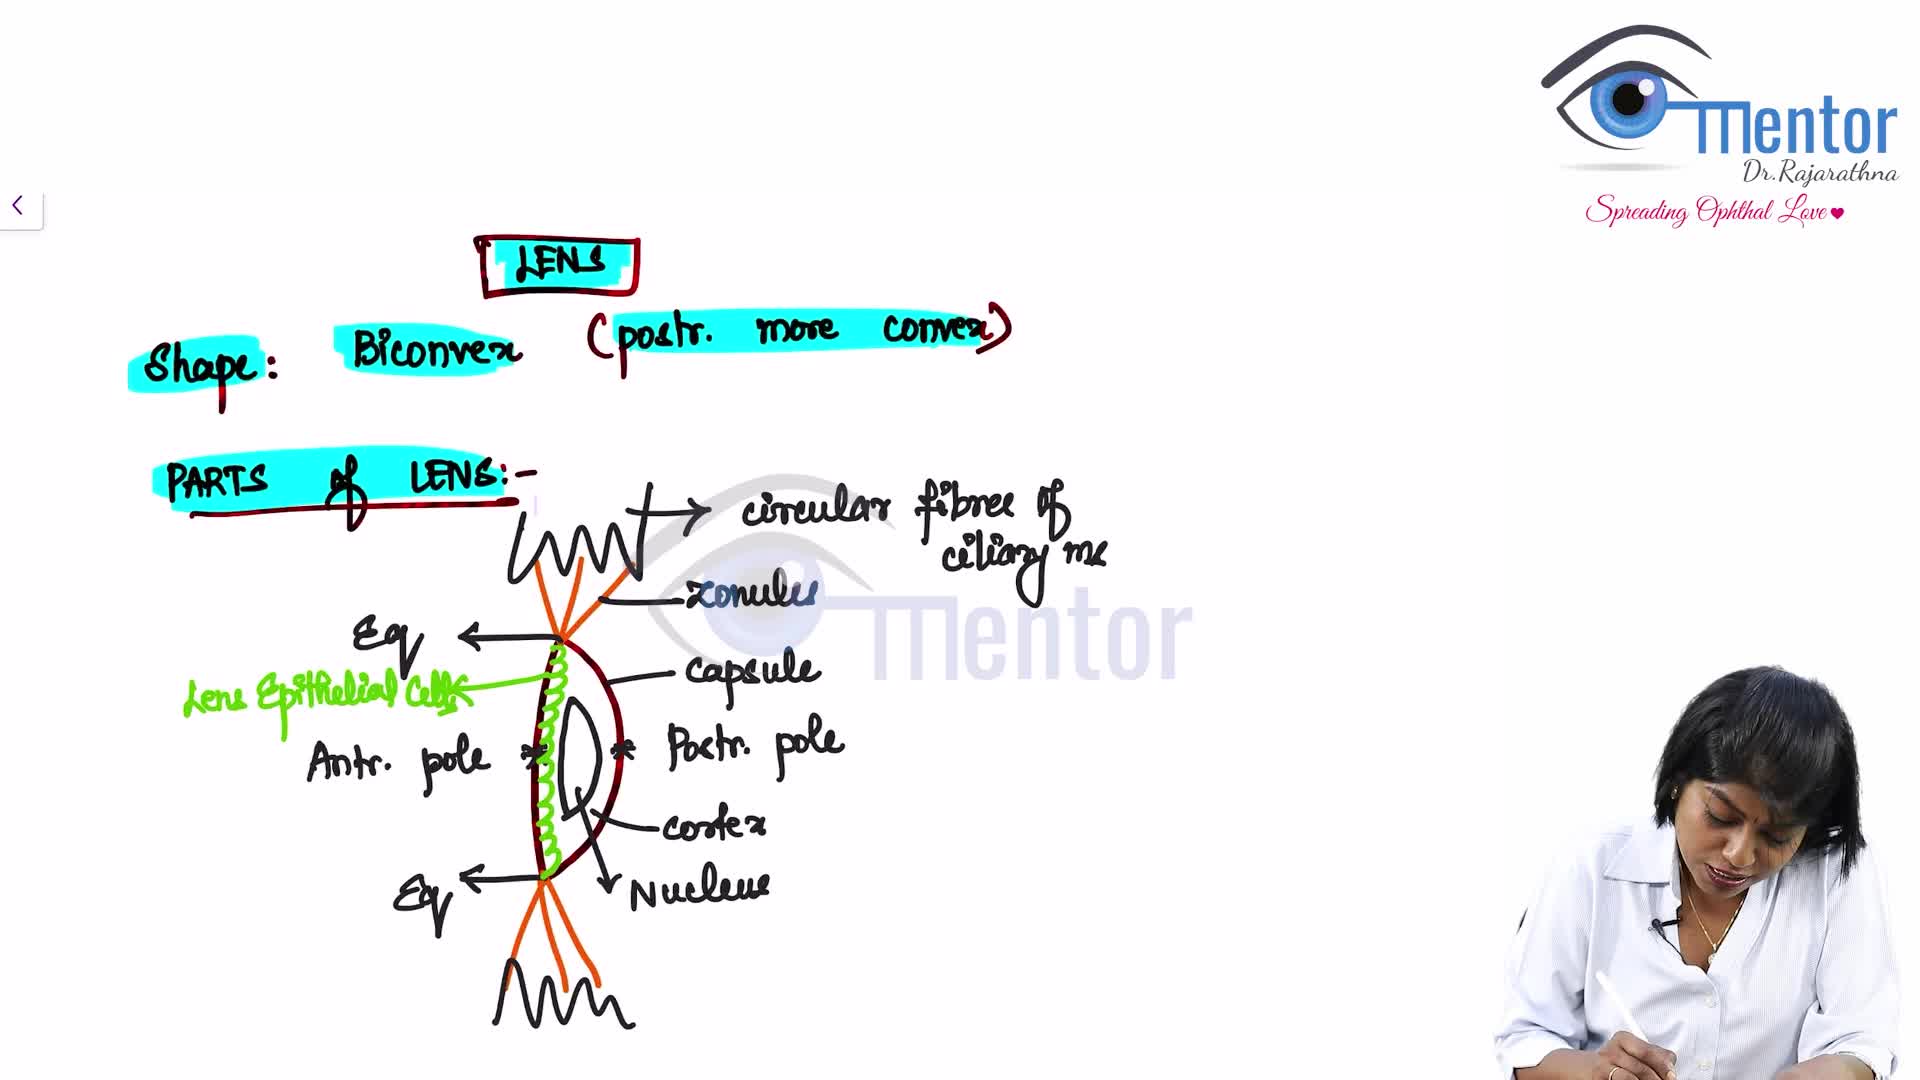 mentor
Dr.Rajarathna
Spreading Ophthal Love
LENS
Shape: Biconvex (postr. more convex)
PARTS of LENS:-
circular fibres of
ciliary ms
zonules
Eq
capsule
Lens Epithelial Cells
Antr. pole
Postr. pole
cortex
Eq
Nucleus
mentor